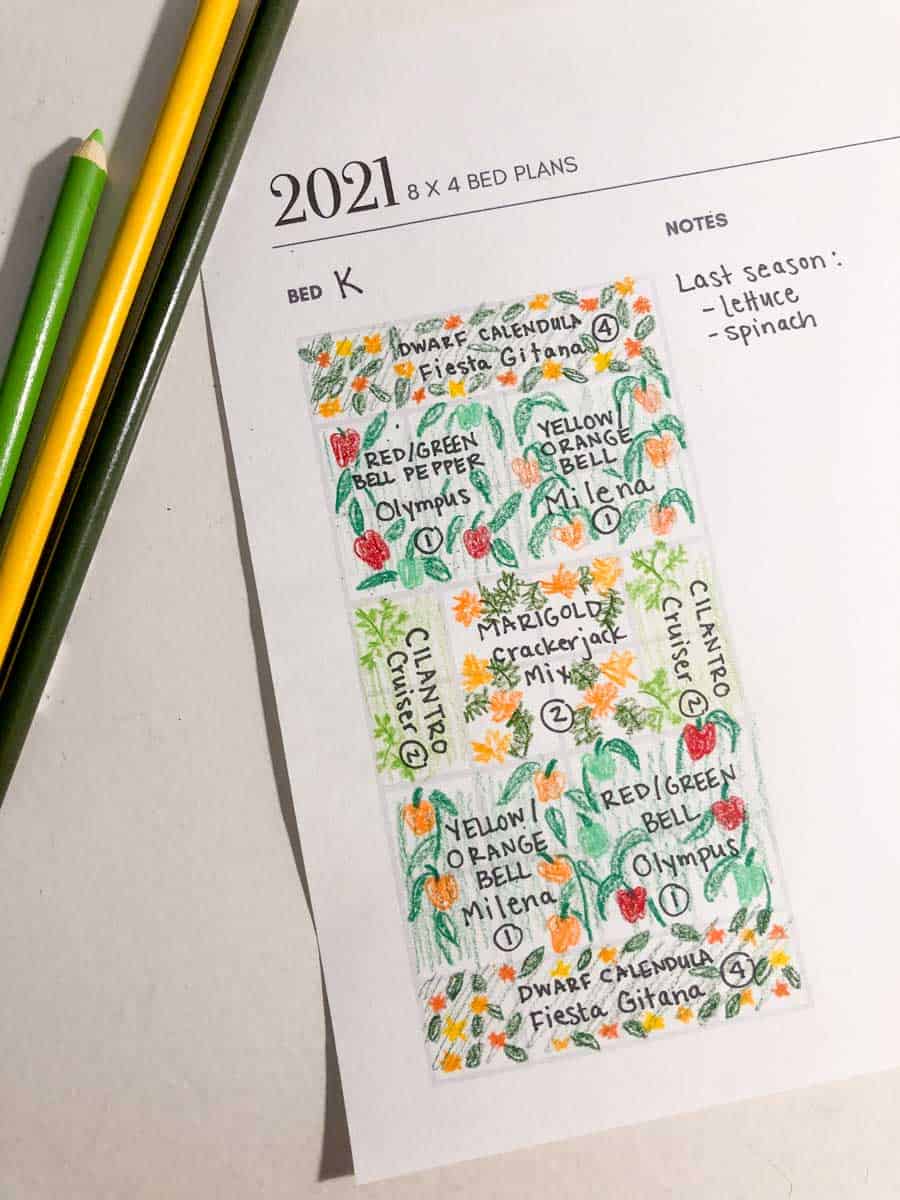 2021 8 X 4 BED PLANS
BED K
NOTES
Last season:
- lettuce
- spinach
DWARF CALENDULA
Fiesta Gitana 4
RED/GREEN
BELL PEPPER
Olympus
1
YELLOW/
ORANGE
BELL
Milena
1
CILANTRO
Cruiser 2
MARIGOLD
Crackerjack
Mix
2
CILANTRO
Cruiser 2
YELLOW/
ORANGE
BELL
Milena
1
RED/GREEN
BELL
Olympus
1
DWARF CALENDULA
Fiesta Gitana 4